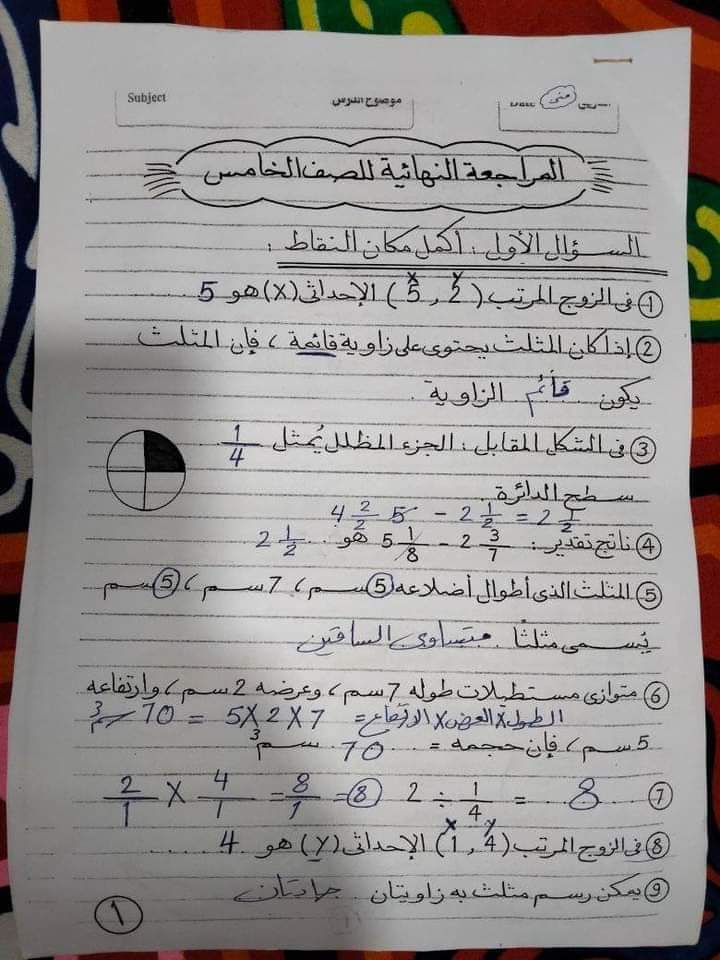 Subject موضوع الدرس Date منى التاريخ
المراجعة النهائية للصف الخامس
السؤال الأول : أكمل مكان النقاط :
① فى الزوج المرتب ( 5 , 2 ) الإحداثى (x) هو 5
x y
② إذا كان المثلث يحتوى على زاوية قائمة ، فإن المثلث
يكون قائم الزاوية .
③ فى الشكل المقابل : الجزء المظلل يُمثل 1/4
سطح الدائرة .
4 2/2 5 - 2 1/2 = 2 1/2
④ ناتج تقدير : 5 1/8 - 2 3/7 هو 2 1/2
⑤ المثلث الذى أطوال أضلاعه 5 سم ، 7 سم ، 5 سم
يُسمى مثلثًا . متساوى الساقين
⑥ متوازى مستطيلات طوله 7 سم ، وعرضه 2 سم ، وارتفاعه
الطول x العرض x الارتفاع = 7 x 2 x 5 = 70 سم3
5 سم ، فإن حجمه = 70 سم3
⑦ 2 ÷ 1/4 = 8 2/1 x 4/1 = 8/1 = 8
x y
⑧ فى الزوج المرتب ( 1 , 4 ) الإحداثى (y) هو 4
⑨ يمكن رسم مثلث به زاويتان حادتان
١